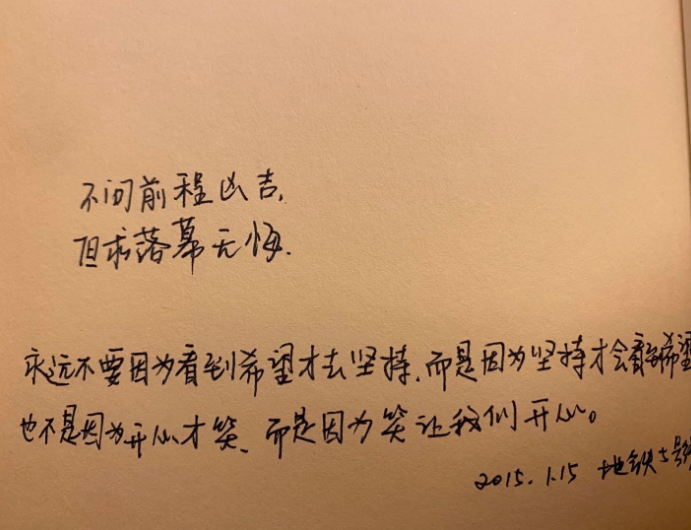 不问前程凶吉,
但求落幕无悔.
永远不要因为看到希望才去坚持,而是因为坚持才会看到希望
也不是因为开心才笑、而是因为笑让我们开心。
2015.1.15 地铁5号线